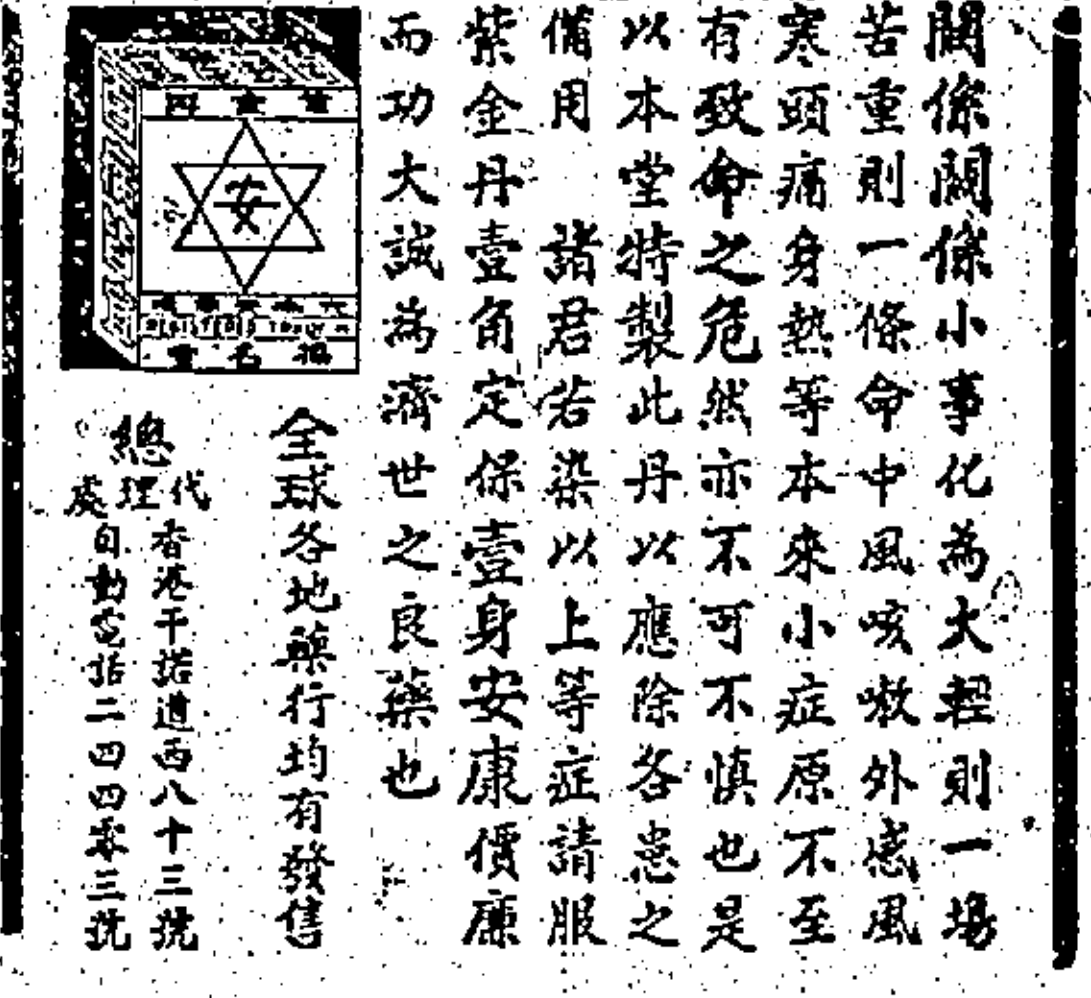 關係關係小事化為大輕則一場
苦重則一條命中風咳嗽外感風
寒頭痛身熱等本來小症原不至
有致命之危然亦不可不慎也是
以本堂特製此丹以應除各患之
備用　諸君若染以上等症請服
紫金丹壹角定保壹身安康價廉
而功大誠為濟世之良藥也
安
全球各地藥行均有發售
總代理處
香港干諾道西八十三號
自動電話二四四零三號